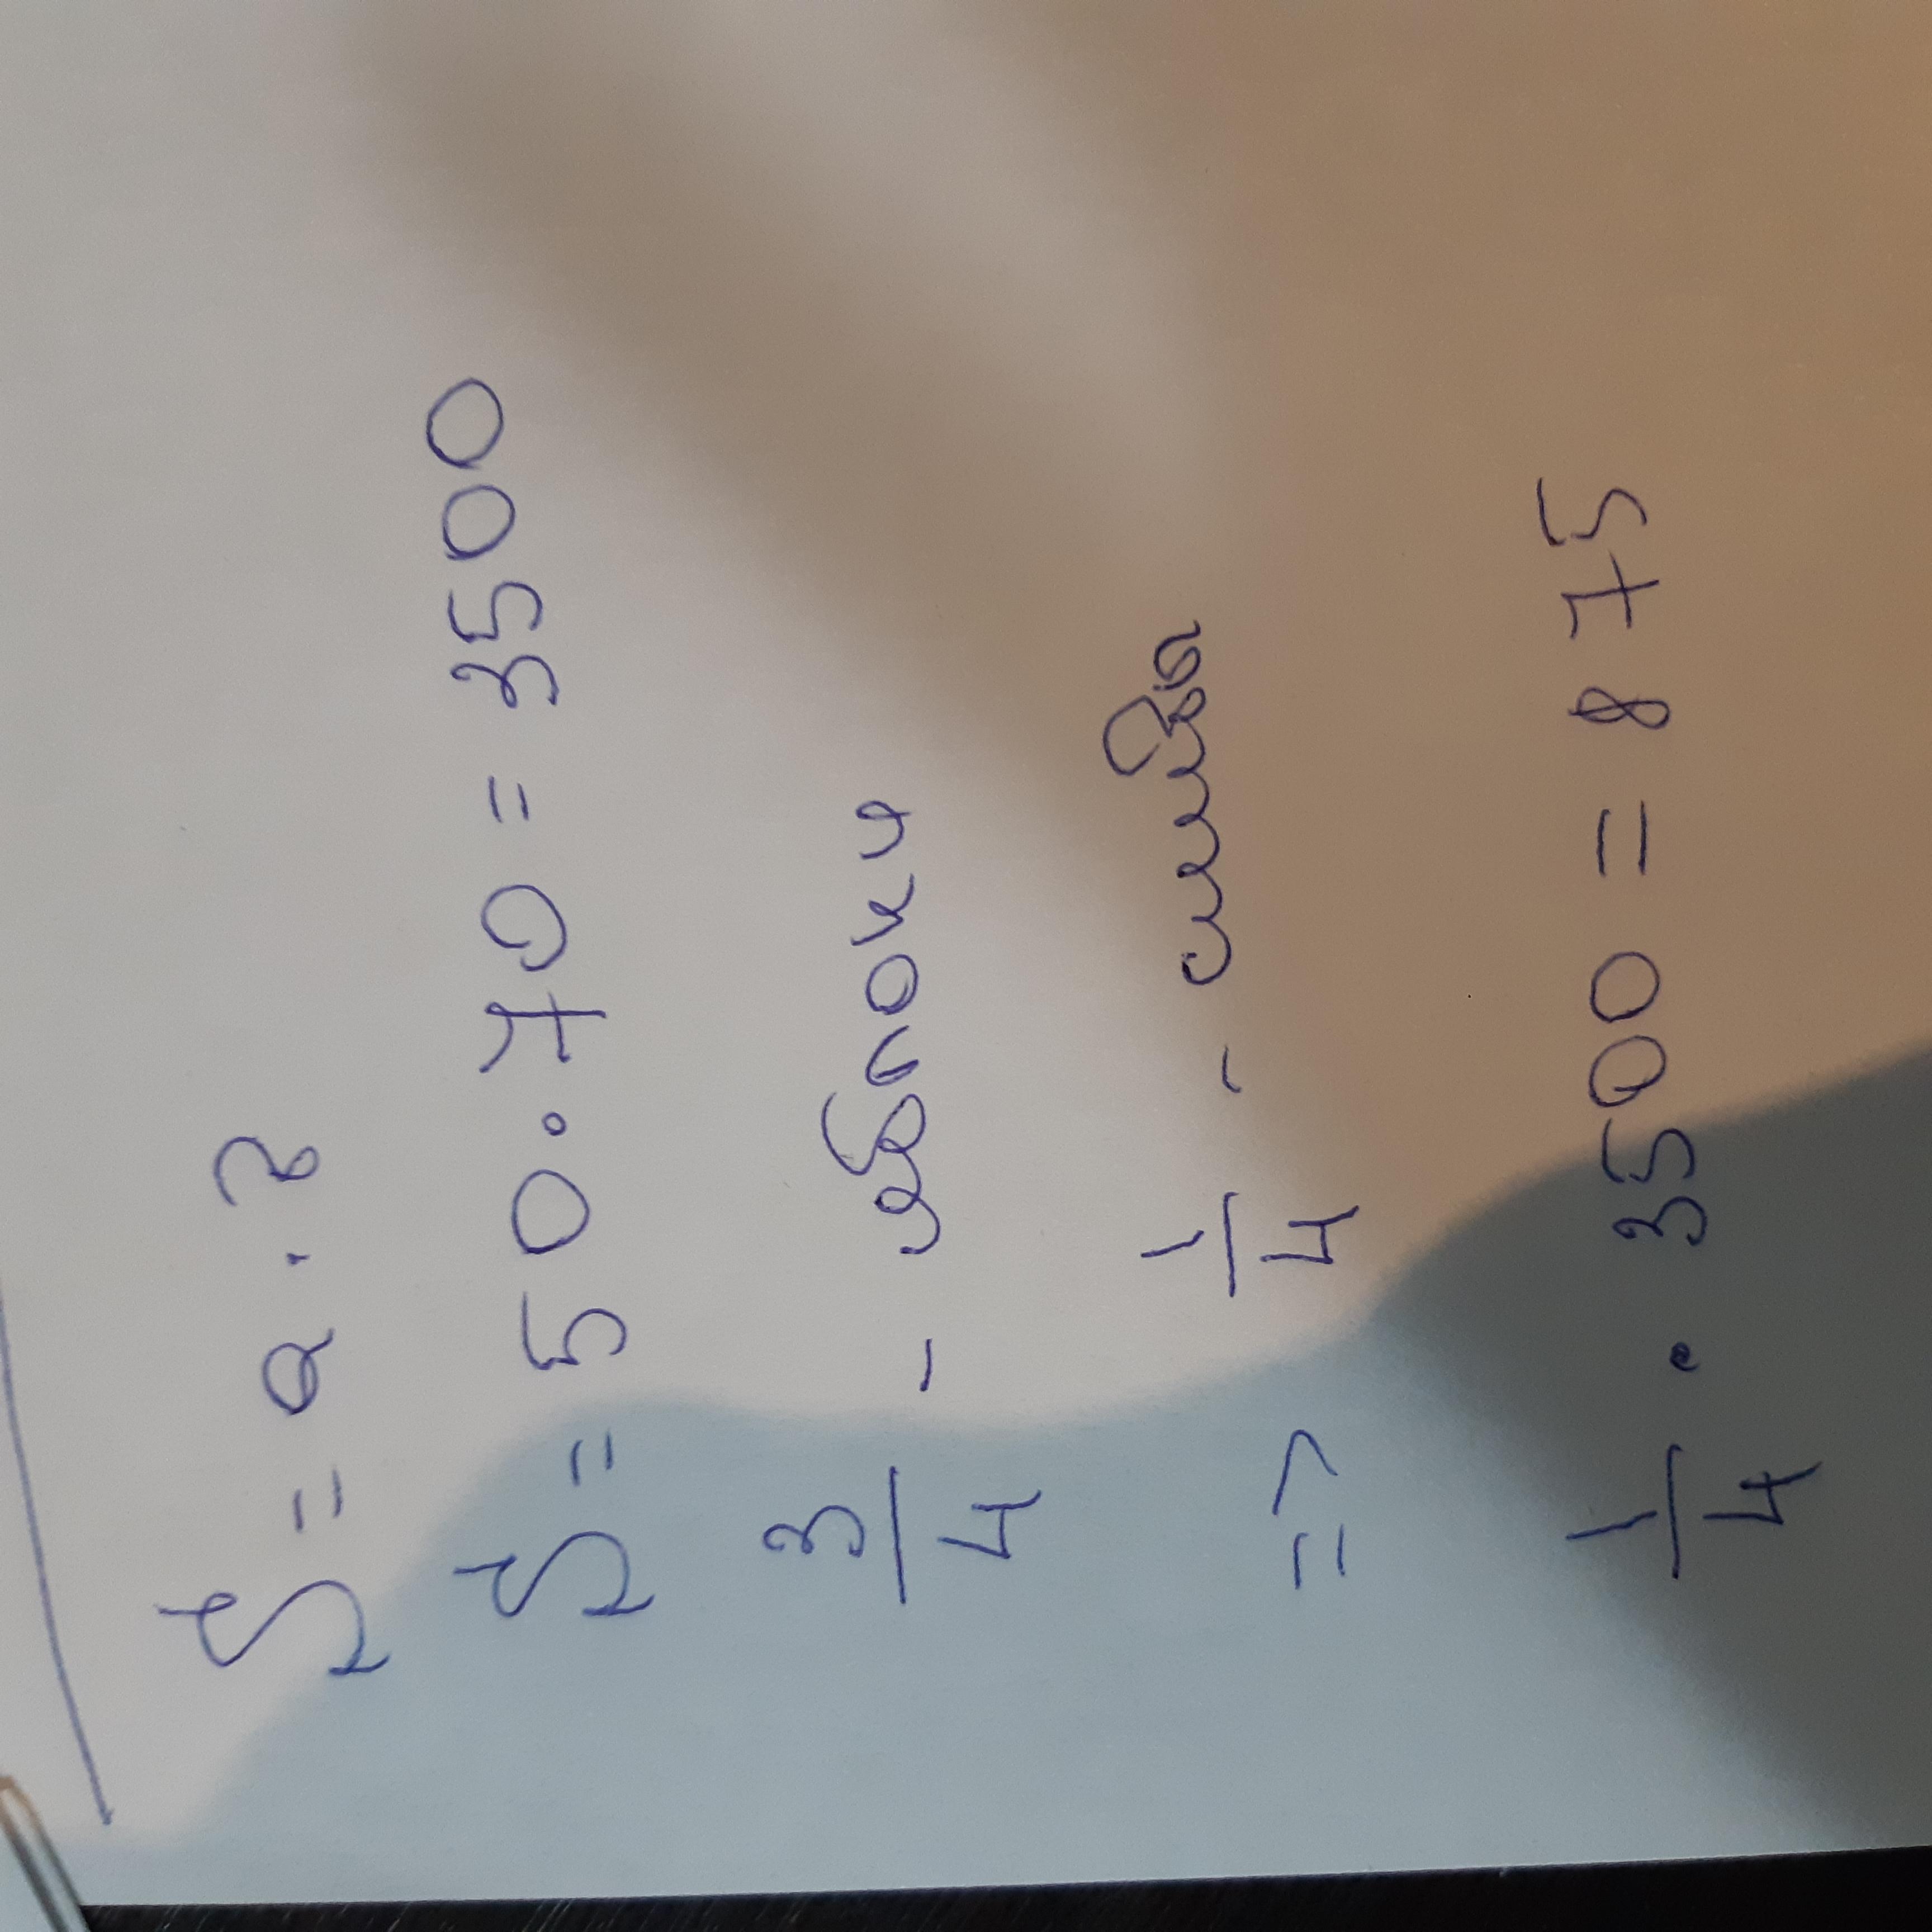 S = a . b
S = 50 . 70 = 3500
3/4 - яблоки
1/4 -
=>
1/4 . 3500 = 875